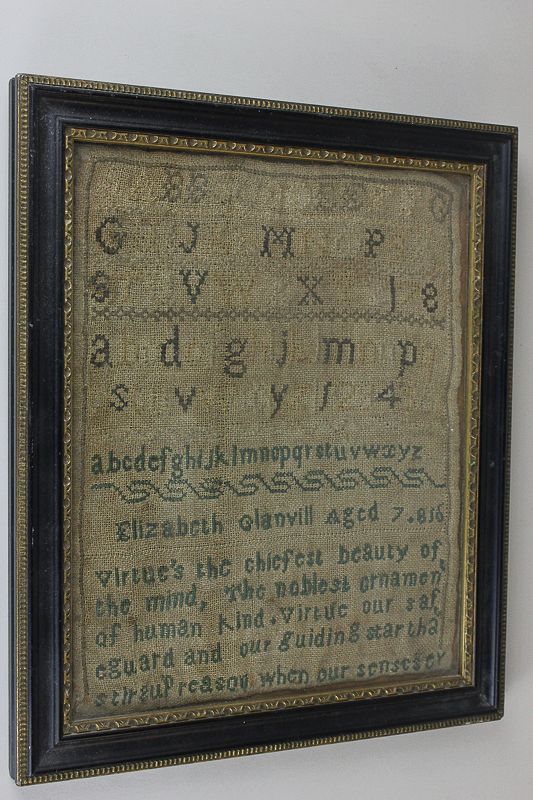 G J M P
S V X J 8
a d g j m p
s v y 1 4
abcdefghijklmnopqrstuvwxyz
Elizabeth Glanvill Aged 7.816
Virtue's the chiefest beauty of
the mind, The noblest ornamen
of human kind. Virtue our saf
eguard and our guiding star tha
stirs up reason when our senses er